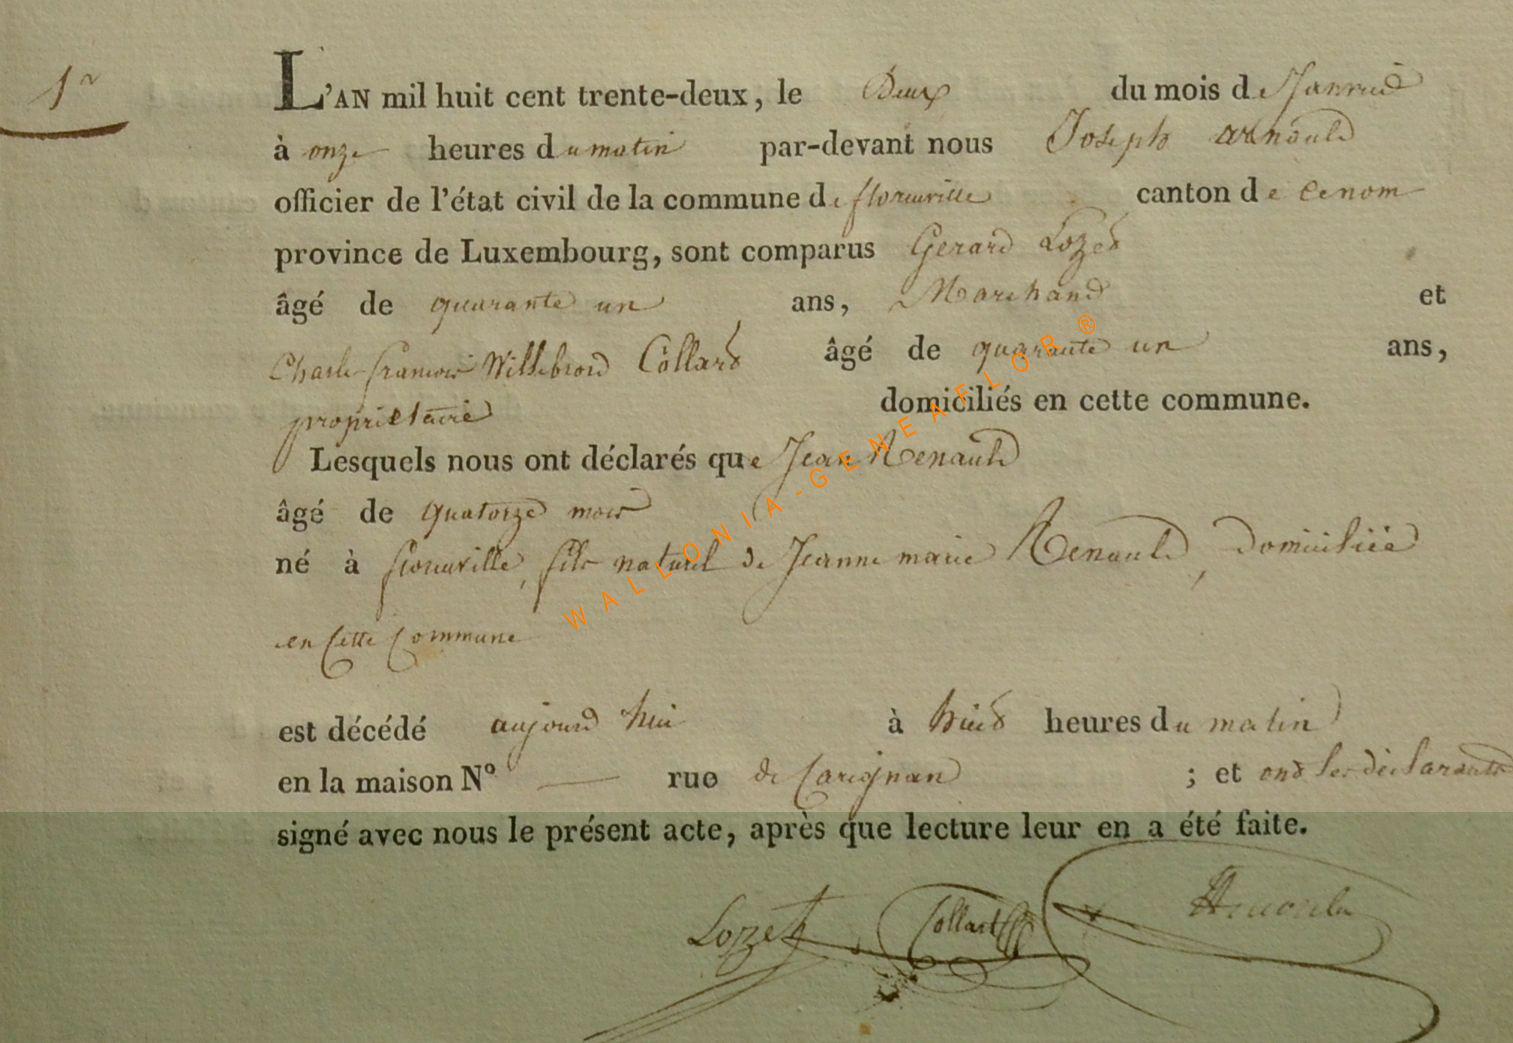 1r
L'AN mil huit cent trente-deux, le Deux du mois de Janvier
à onze heures du matin par-devant nous Joseph Arnould
officier de l'état civil de la commune de florenville canton de Cenom
province de Luxembourg, sont comparus Gerard Lozet
âgé de quarante un ans, Marchand et
Charle francois Willebrord Collard âgé de quarante un ans,
propriétaire domiciliés en cette commune.
Lesquels nous ont déclarés que Jean Renauld
âgé de quatorze mois
né à florenville, fils naturel de Jeanne marie Renauld, domiciliée
en Cette Commune
est décédé aujourd'hui à huit heures du matin
en la maison N° — rue de Carignan ; et ont les déclarants
signé avec nous le présent acte, après que lecture leur en a été faite.
Lozet Collart Arnould
WALLONIA-GENEAELGR ®